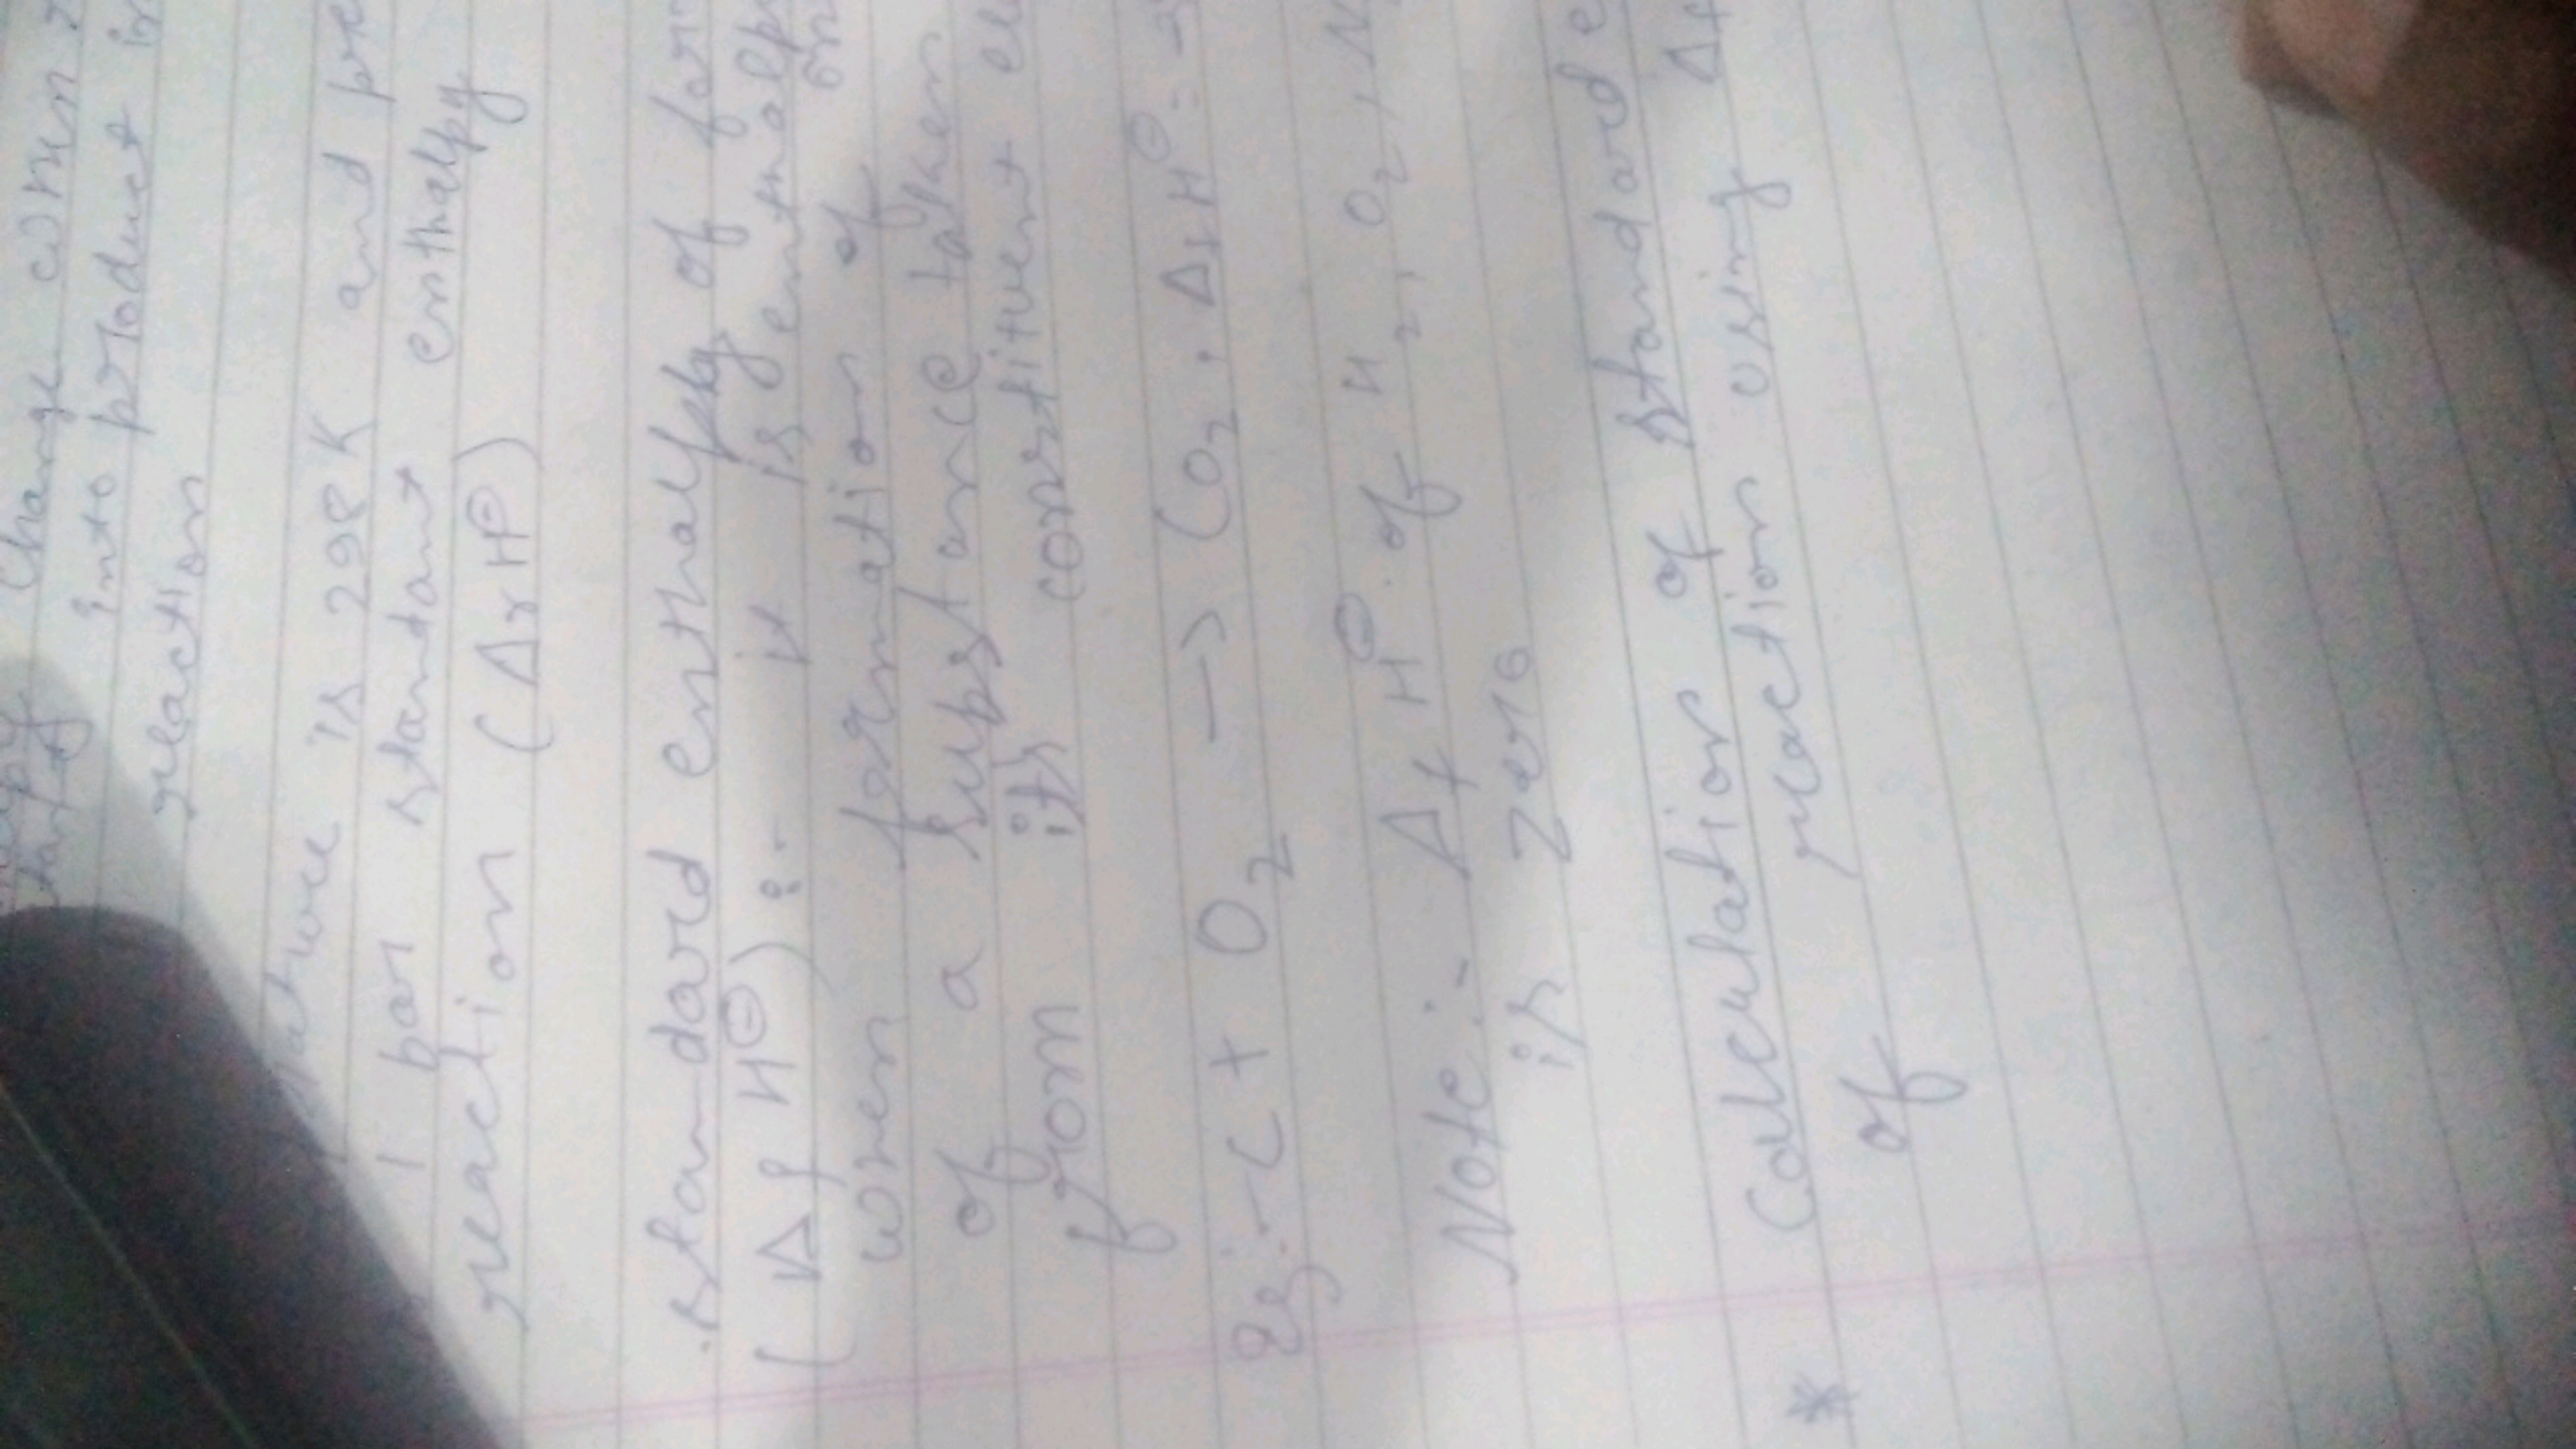 change when
into product in
reaction
is 298 K and pre
1 bar standant enthalpy
reaction (ΔrH⊖)
standard enthalpy of form
(ΔfH⊖) :- it is enthalpy
when formation of on
of a substance taken
from its constituent ele
eg:- C + O2 → CO2, ΔfH⊖ = -
Note :- ΔfH⊖ of H2, O2, N
is zero
* Calculation of standard e
of reaction using Δf